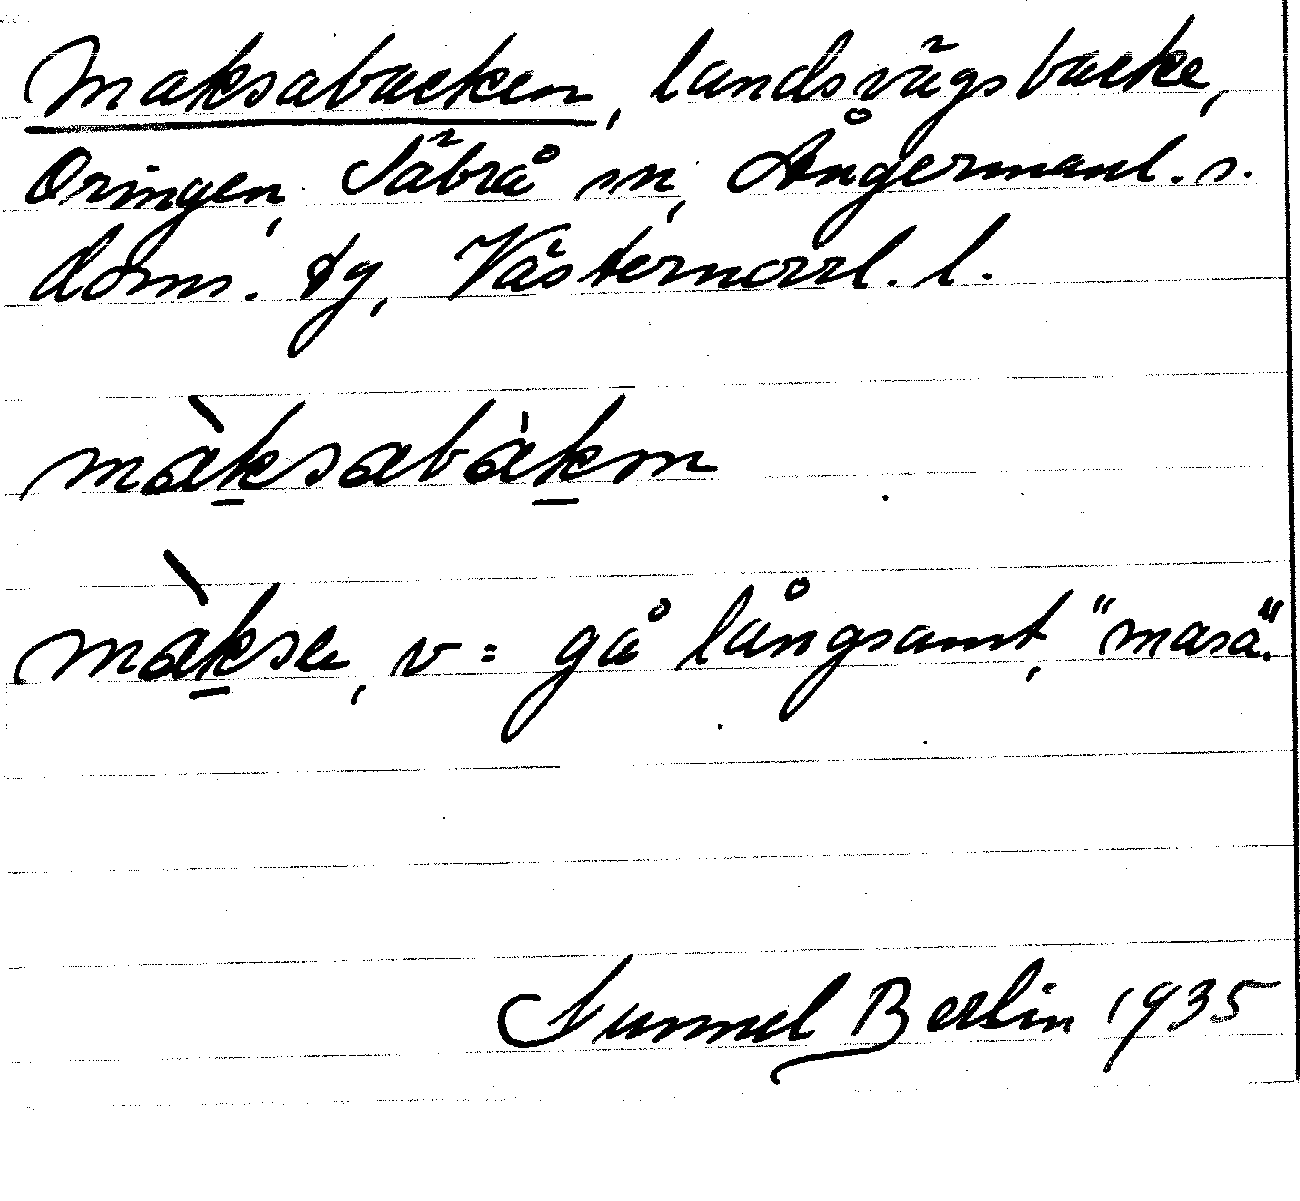 Maksabacken, landsvägsbacke,
Oringen, Säbrå sn, Ångermanl. s.
doms. tg, Västernorrl. l.
màksabàkm
màksa, v = gå långsamt, "masa".
Gunnel Berlin 1935